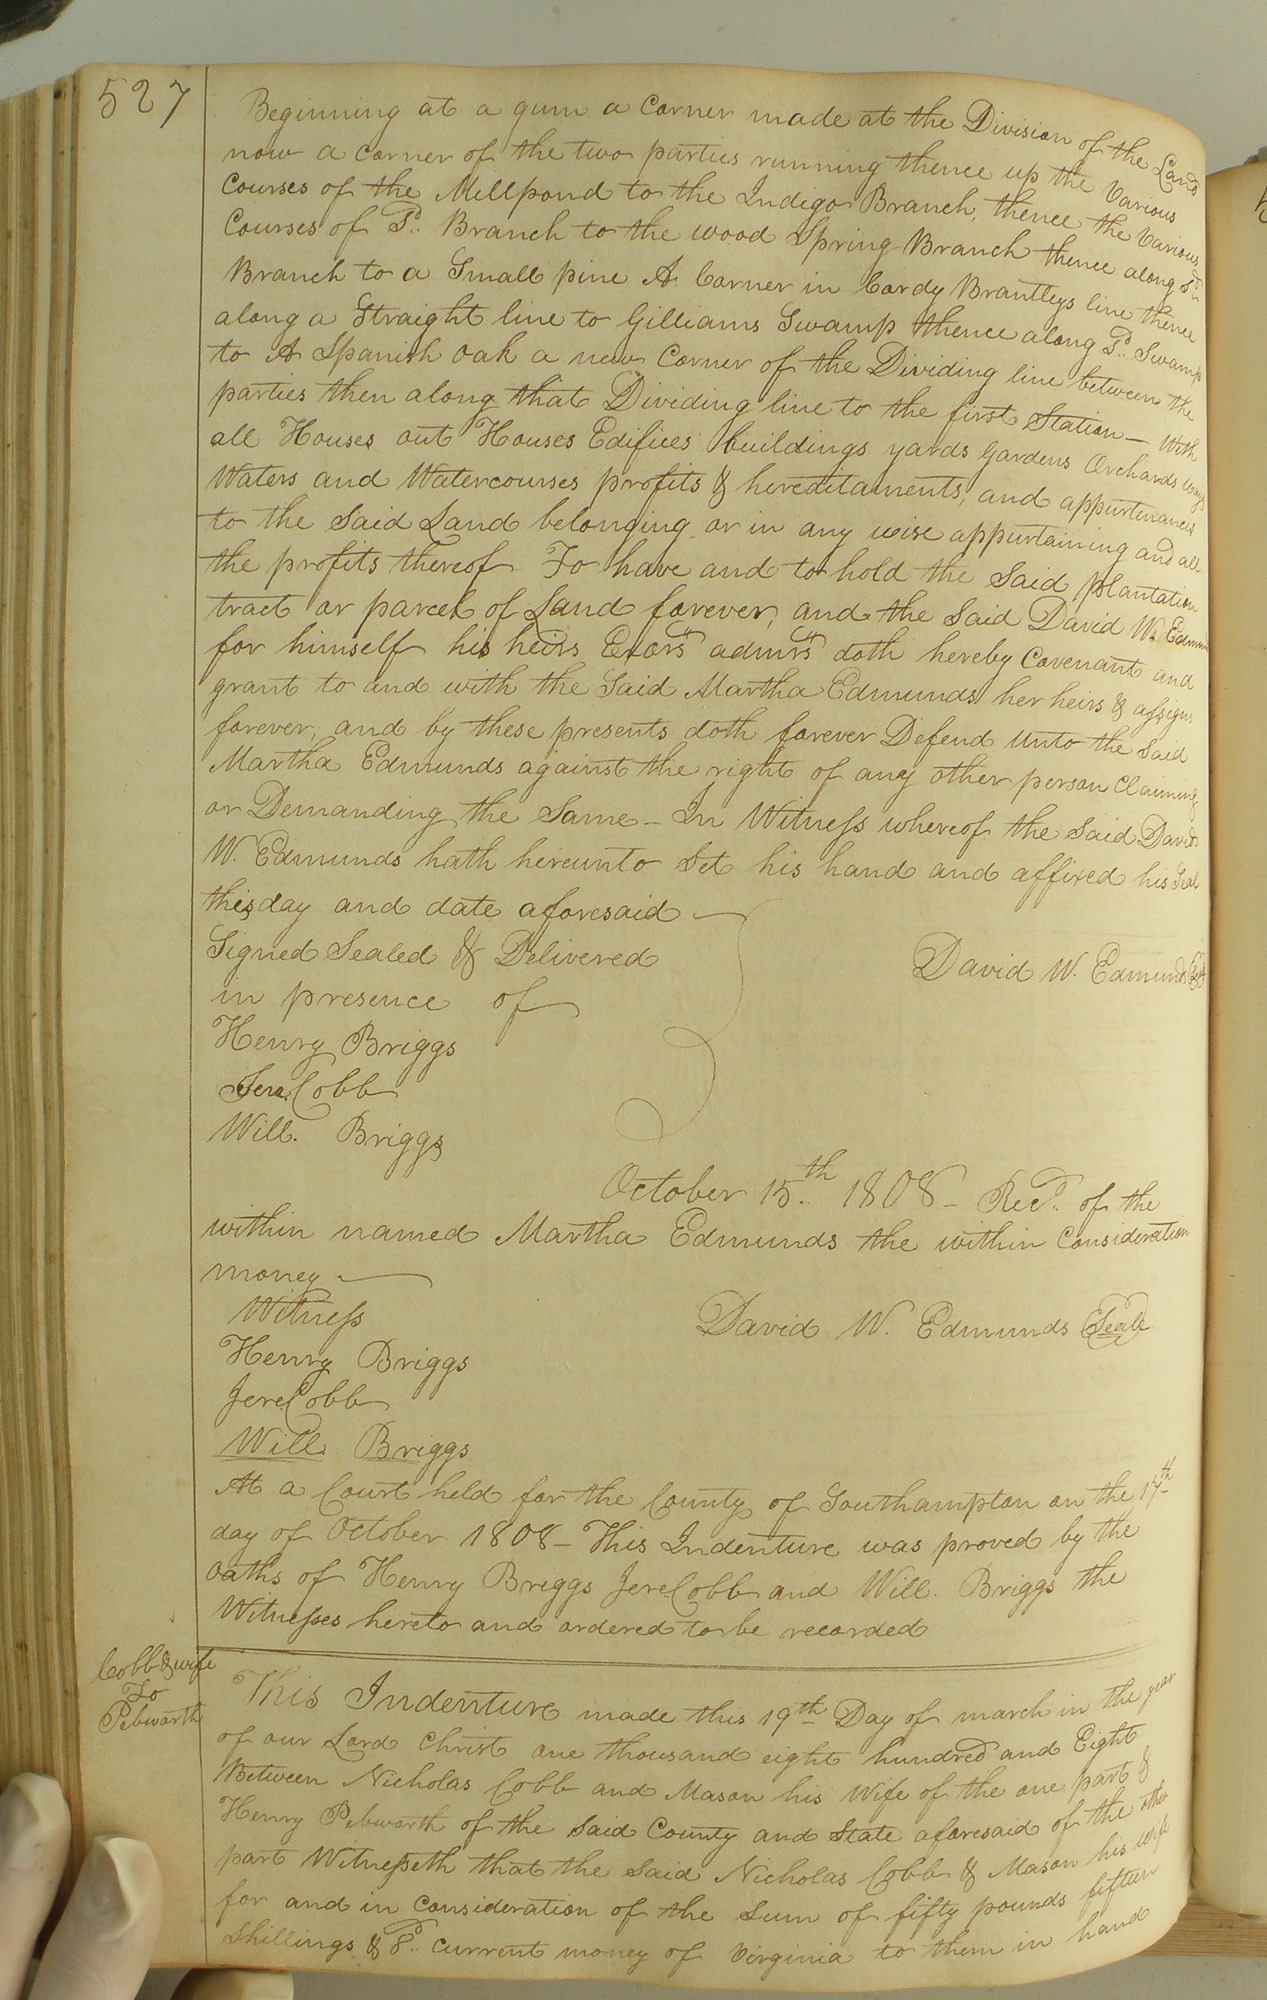 527
Beginning at a gum a Corner made at the Division of the Land
now a corner of the two parties running thence up the Various
Courses of the Millpond to the Indigo Branch, thence the Various
Courses of Sd.. Branch to the wood Spring Branch thence along Sd
Branch to a Small pine A Corner in Cordy Brantleys line thence
along a Straight line to Gilliams Swamp thence along Sd.. Swamp
to A Spanish Oak a new Corner of the Dividing line between the
parties then along that Dividing line to the first Station — With
all Houses out Houses Edifices buildings yards Gardens Orchards ways
Waters and Watercourses profits & hereditaments, and appurtenances
to the Said Land belonging or in any wise appurtaining and all
the profits thereof To have and to hold the Said plantation
tract or parcel of Land forever, and the Said David W. Edmunds
for himself his heirs Exors admrs doth hereby Covenant and
grant to and with the Said Martha Edmunds her heirs & assigns
forever, and by these presents doth forever Defend Unto the Said
Martha Edmunds against the right of any other person Claiming
or Demanding the Same — In Witness whereof the Said David
W. Edmunds hath hereunto Set his hand and affixed his Seal
this day and date aforesaid —
Signed Sealed & Delivered
in presence of
David W. Edmunds Seal
Henry Briggs
Jere. Cobb
Will. Briggs
October 15th.. 1808 — Recd. of the
within named Martha Edmunds the within Consideration
money —
Witness
David W. Edmunds Seal
Henry Briggs
Jere. Cobb
Will. Briggs
At a Court held for the County of Southampton on the 17th
day of October 1808 — This Indenture was proved by the
Oaths of Henry Briggs Jere. Cobb and Will. Briggs the
Witnesses hereto and ordered to be recorded
Cobb & wife
To
Pebworth
This Indenture made this 19th Day of march in the year
of our Lord Christ one thousand eight hundred and Eight
Between Nicholas Cobb and Mason his Wife of the one part &
Henry Pebworth of the Said County and State aforesaid of the other
part Witnesseth that the Said Nicholas Cobb & Mason his wife
for and in Consideration of the Sum of fifty pounds fifteen
Shillings & 8d.. Current money of Virginia to them in hand